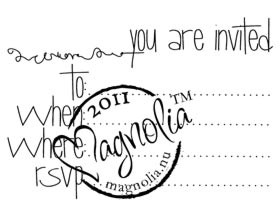 you are invited
to:
When:
Where:
rsvp
2011
Magnolia™
magnolia.nu